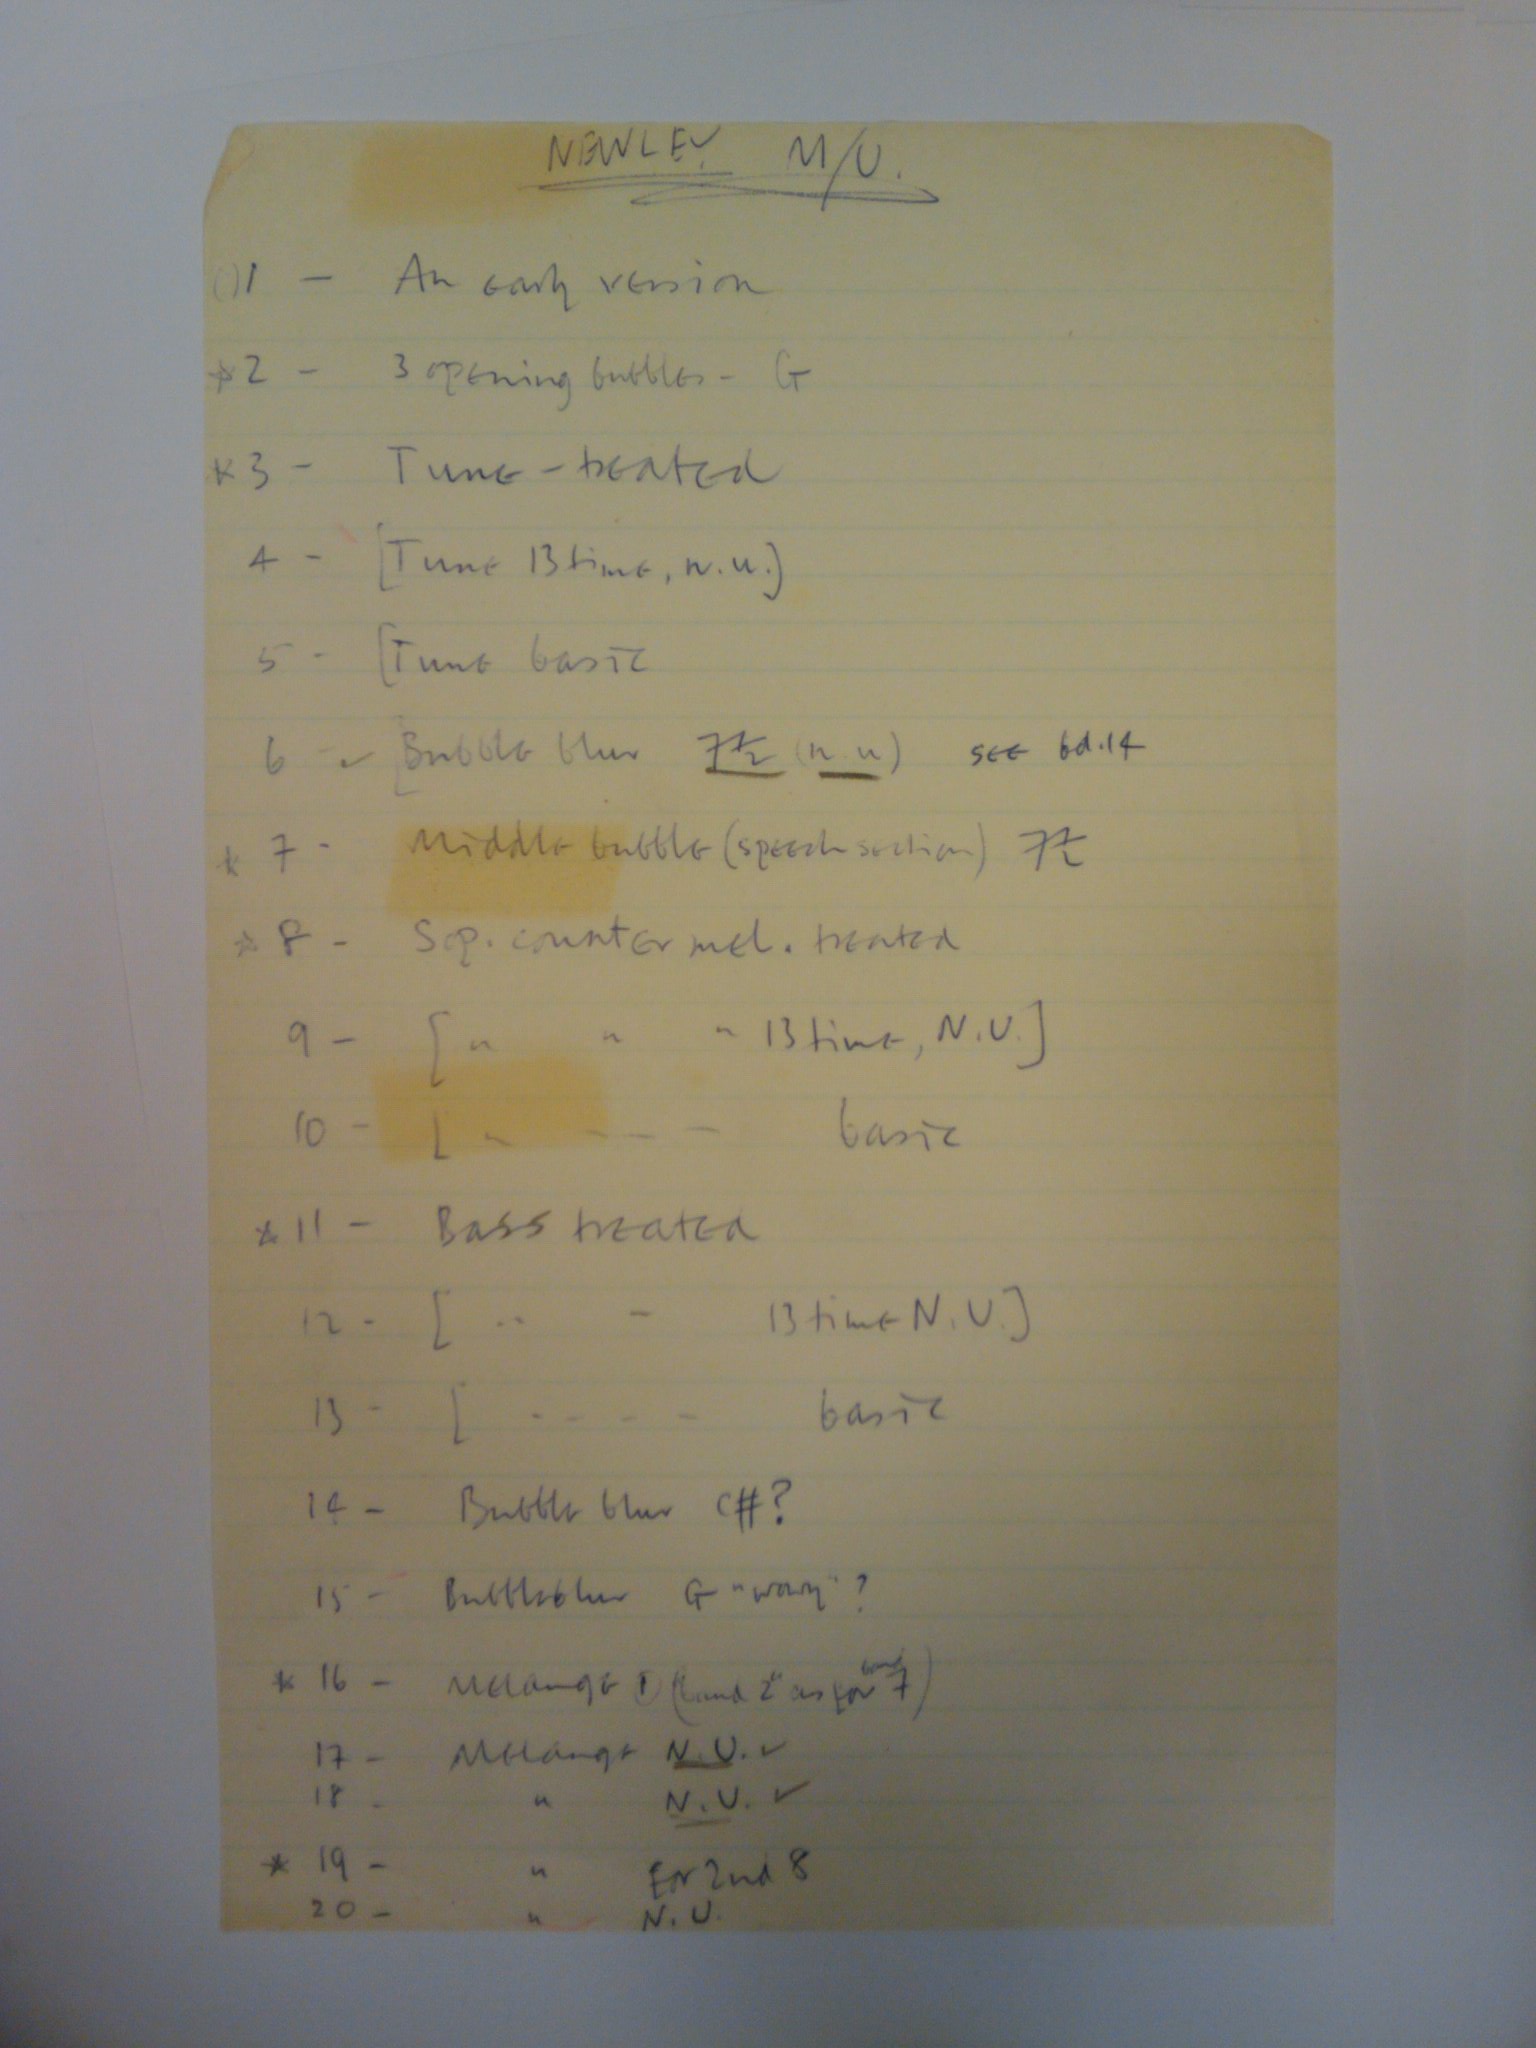 NEWLEY M/U.
1 - An early version
* 2 - 3 opening bubbles - G
* 3 - Tune - treated
4 - [Tune 13 time, n.u.]
5 - [Tune basic
6 - ✓ [Bubble blur 7½ (n.u) see bd.14
* 7 - Middle bubble (speech section) 7½
* 8 - Sop. counter mel. treated
9 - [ " " " 13 time, N.U.]
10 - [ " - - - basic
* 11 - Bass treated
12 - [ " " 13 time N.U.]
13 - [ - - - - basic
14 - Bubble blur C#?
15 - Bubble blur G "wowy"?
* 16 - Melange ① (band 2" as for band 7)
17 - Melange N.U. ✓
18 - " N.U. ✓
* 19 - " for 2nd 8
20 - " N.U.